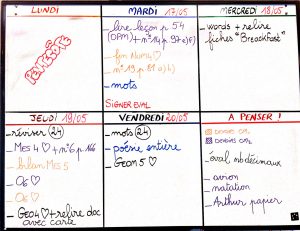 LUNDI
PENTECÔTE
MARDI 17/05
_lire leçon p 54
(OPM) + n°14 p 97 a) b)
_fin Num4 ♡
_n°19 p 81 a) b)
_mots
SIGNER EVAL
MERCREDI 18/05
_words + relire
fiches "BreackFast"
JEUDI 19/05
_réviser 24
_Mes 4 ♡ + n°6 p 166
_bilan Mes 5
_O5 ♡
_O6 ♡
_Geo4 ♡ + relire doc
avec carte
VENDREDI 20/05
_mots 24
_poésie entière
_Geom 5 ♡
A PENSER !
DEVOIRS
DEVOIRS
_éval nb décimaux
_avion
_natation
_Arthur papier